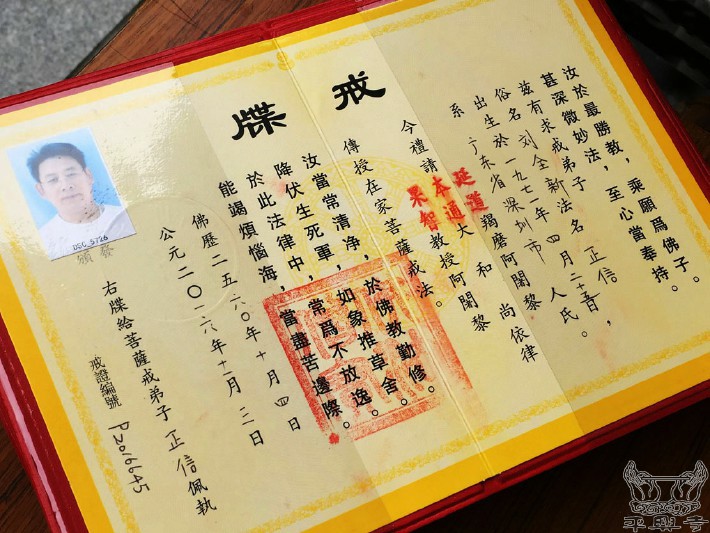 戒牒
汝於最勝教，乘願爲佛子。
甚深微妙法，至心當奉持。
兹有求戒弟子
俗名刘全新法名正信，
出生於一九七一年四月二十五日，
系广东省深圳市人民。
今禮請
延道
本通
果智
大和尚依律
羯磨阿闍黎
教授阿闍黎
傳授在家菩薩戒法。
汝當常清净，於佛教勤修。
降伏生死軍，如象推草舍。
於此法律中，常爲不放逸。
能竭煩惱海，當盡苦邊際。
佛歷二五六〇年十月四日
公元二〇一六年十一月三日
頒發
右牒給菩薩戒弟子正信佩執
戒證編號 P2016645
DSC_5726
平興寺